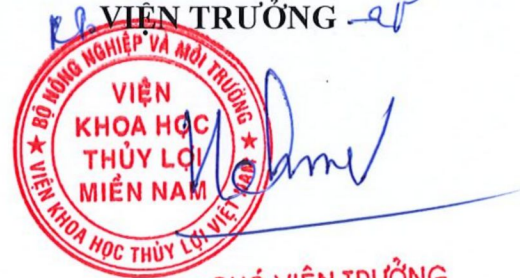 VIỆN TRƯỞNG
BỘ NÔNG NGHIỆP VÀ MÔI TRƯỜNG
VIỆN
KHOA HỌC
THỦY LỢI
MIỀN NAM
VIỆN KHOA HỌC THỦY LỢI VIỆT NAM
PHÓ VIỆN TRƯỞNG